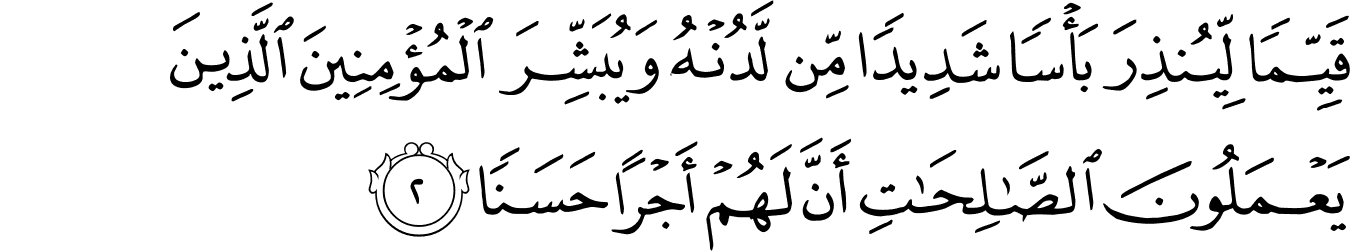 قَيِّمًا لِّيُنذِرَ بَأْسًا شَدِيدًا مِّن لَّدُنْهُ وَيُبَشِّرَ ٱلْمُؤْمِنِينَ ٱلَّذِينَ
يَعْمَلُونَ ٱلصَّـٰلِحَـٰتِ أَنَّ لَهُمْ أَجْرًا حَسَنًا ٢